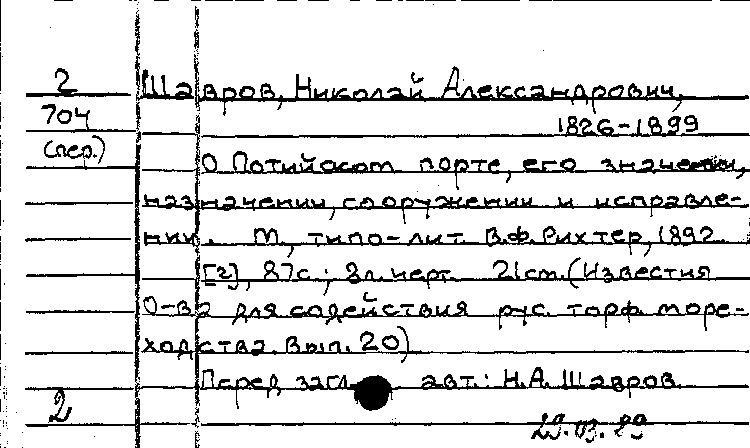 2 Шавров, Николай Александрович,
704 1826-1899
(пер.)
О Потийском порте, его значении,
назначении, сооружении и исправле-
нии. М., типо-лит. В.Ф. Рихтер, 1892.
[2], 87с.; 8л. черт. 21см. (Известия
О-ва для содействия рус. торф. море-
ходства. Вып. 20)
Перед загл. авт.: Н.А. Шавров.
2
29.03.89